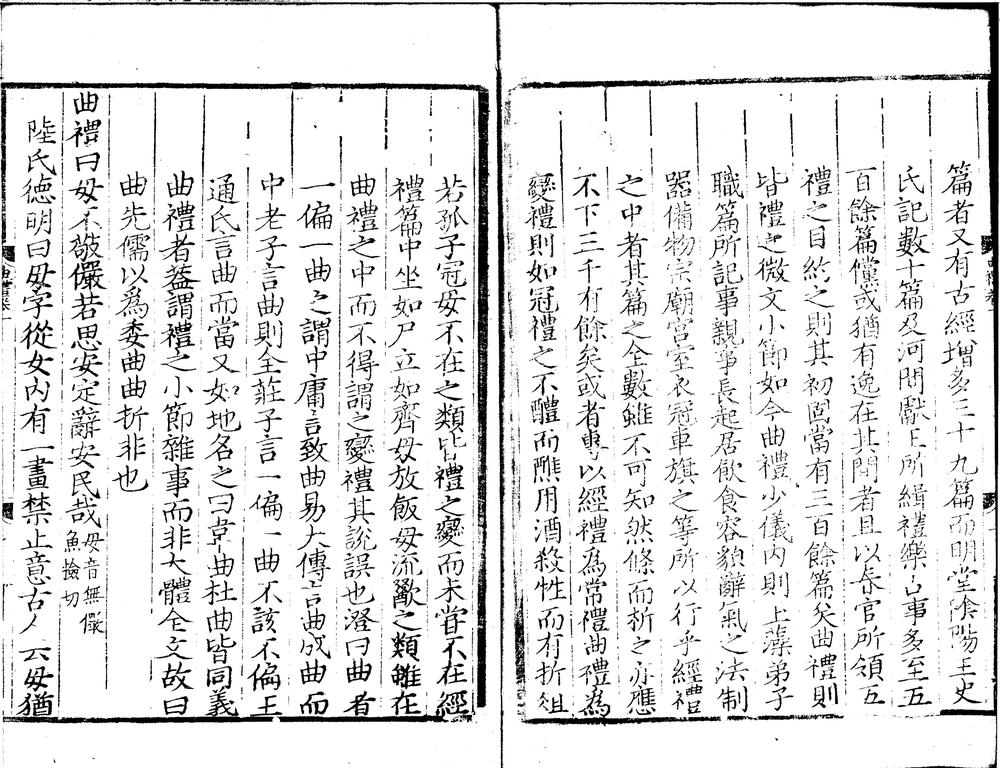 篇者又有古經增多三十九篇而明堂隂陽王史
氏記數十篇及河間獻王所緝禮樂古事多至五
百餘篇儻或猶有逸在其間者且以春官所領五
禮之目約之則其初固當有三百餘篇矣曲禮則
皆禮之微文小節如今曲禮少儀内則玉藻弟子
職篇所記事親事長起居飲食容貌辭氣之法制
器備物宗廟宫室衣冠車旗之等所以行乎經禮
之中者其篇之全數雖不可知然條而析之亦應
不下三千有餘矣或者專以經禮為常禮曲禮為
變禮則如冠禮之不醴而醮用酒殺牲而有折俎
若孤子冠母不在之類皆禮之變而未嘗不在經
禮篇中坐如尸立如齊毋放飯毋流歠之類雖在
曲禮之中而不得謂之變禮其說誤也澄曰曲者
一偏一曲之謂中庸言致曲易大傳言曲成曲而
中老子言曲則全莊子言一偏一曲不該不偏王
通氏言曲而當又如地名之曰韋曲杜曲皆同義
曲禮者葢謂禮之小節雜事而非大體全文故曰
曲先儒以為委曲曲折非也
曲禮曰毋不敬儼若思安定辭安民哉毋音無儼魚撿切
陸氏德明曰毋字從女内有一畫禁止意古人云毋猶